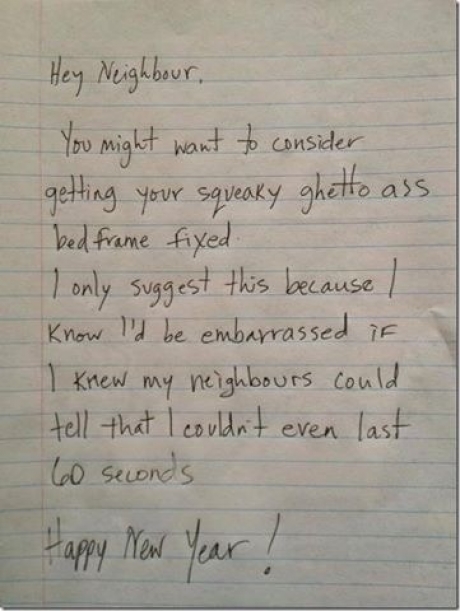 Hey Neighbour,
You might want to consider
getting your squeaky ghetto ass
bedframe fixed.
I only suggest this because I
know I'd be embarrassed if
I knew my neighbours could
tell that I couldn't even last
60 seconds
Happy New Year!